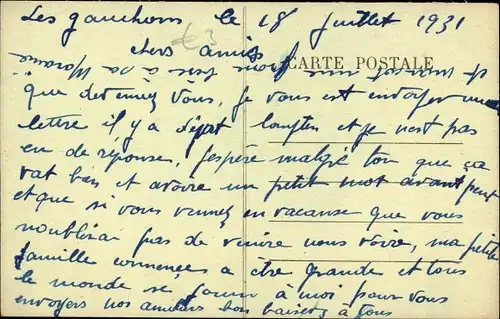 Les gauchons le 18 juillet 1931
chers amis
CARTE POSTALE
que devenez vous, je vous est envoyer une
lettre il y a déjat lomptem et je nest pas
eu de réponse, j'espère malgré tou que ça
vat bien et avoire un petit mot avant peut
et que si vous venez en vacanse que vous
noublirai pas de venire nous voire, ma petite
famille commence a être grande et tous
le monde se join à moi pour vous
envoyers nos ameliers bon baisers à tous